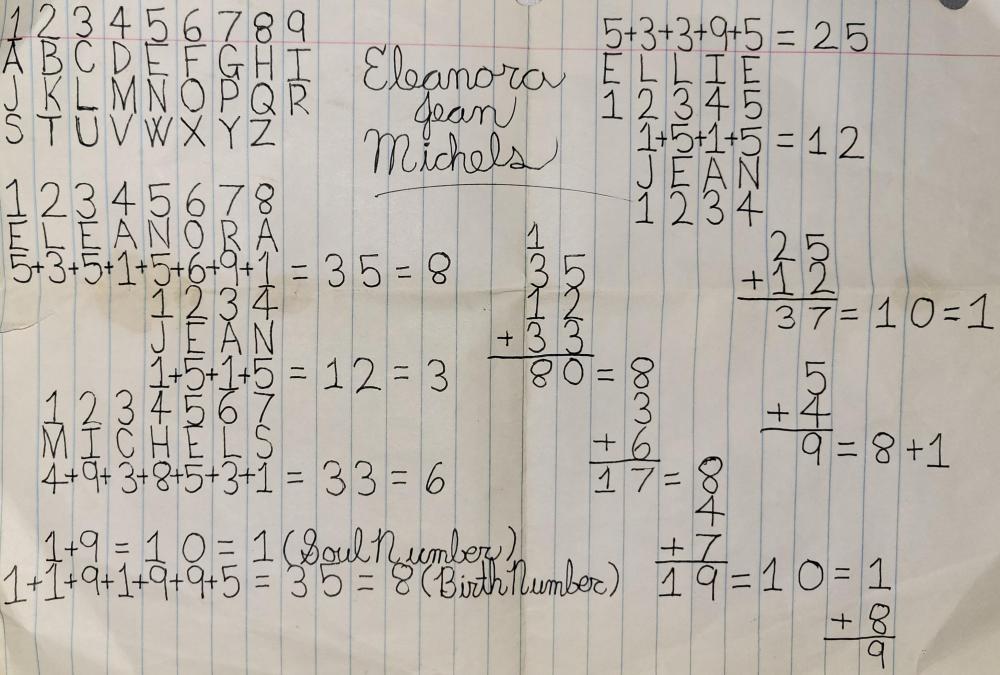 1 2 3 4 5 6 7 8 9
A B C D E F G H I
J K L M N O P Q R
S T U V W X Y Z
Eleanora
Jean
Michels
5+3+3+9+5 = 25
E L L I E
1 2 3 4 5
1+5+1+5 = 12
J E A N
1 2 3 4
1 2 3 4 5 6 7 8
E L E A N O R A
5+3+5+1+5+6+9+1 = 35 = 8
1 2 3 4
J E A N
1+5+1+5 = 12 = 3
1 2 3 4 5 6 7
M I C H E L S
4+9+3+8+5+3+1 = 33 = 6
1
35
12
+ 33
80 = 8
3
+ 6
17 = 8
4
+ 7
19 = 10 = 1
+ 8
9
25
+12
37 = 10 = 1
5
+ 4
9 = 8+1
1+9 = 10 = 1 (Soul Number)
1+1+9+1+9+9+5 = 35 = 8 (Birth Number)